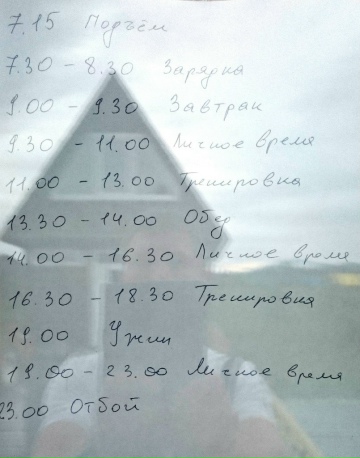 7.15 Подъём
7.30 – 8.30 Зарядка
9.00 – 9.30 Завтрак
9.30 – 11.00 Личное время
11.00 – 13.00 Тренировка
13.30 – 14.00 Обед
14.00 – 16.30 Личное время
16.30 – 18.30 Тренировка
19.00 Ужин
19.00 – 23.00 Личное время
23.00 Отбой